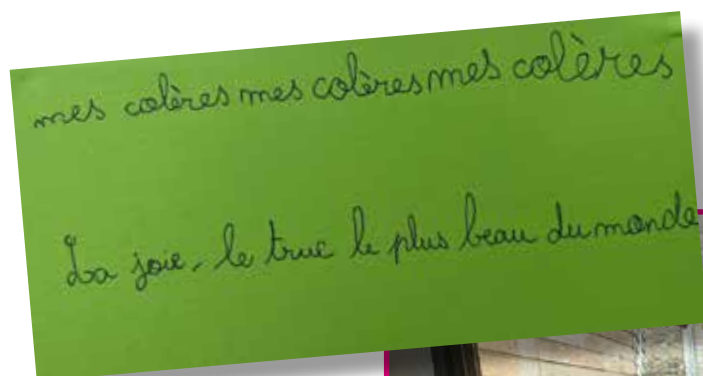 mes colères mes colères mes colères
La joie, le truc le plus beau du monde